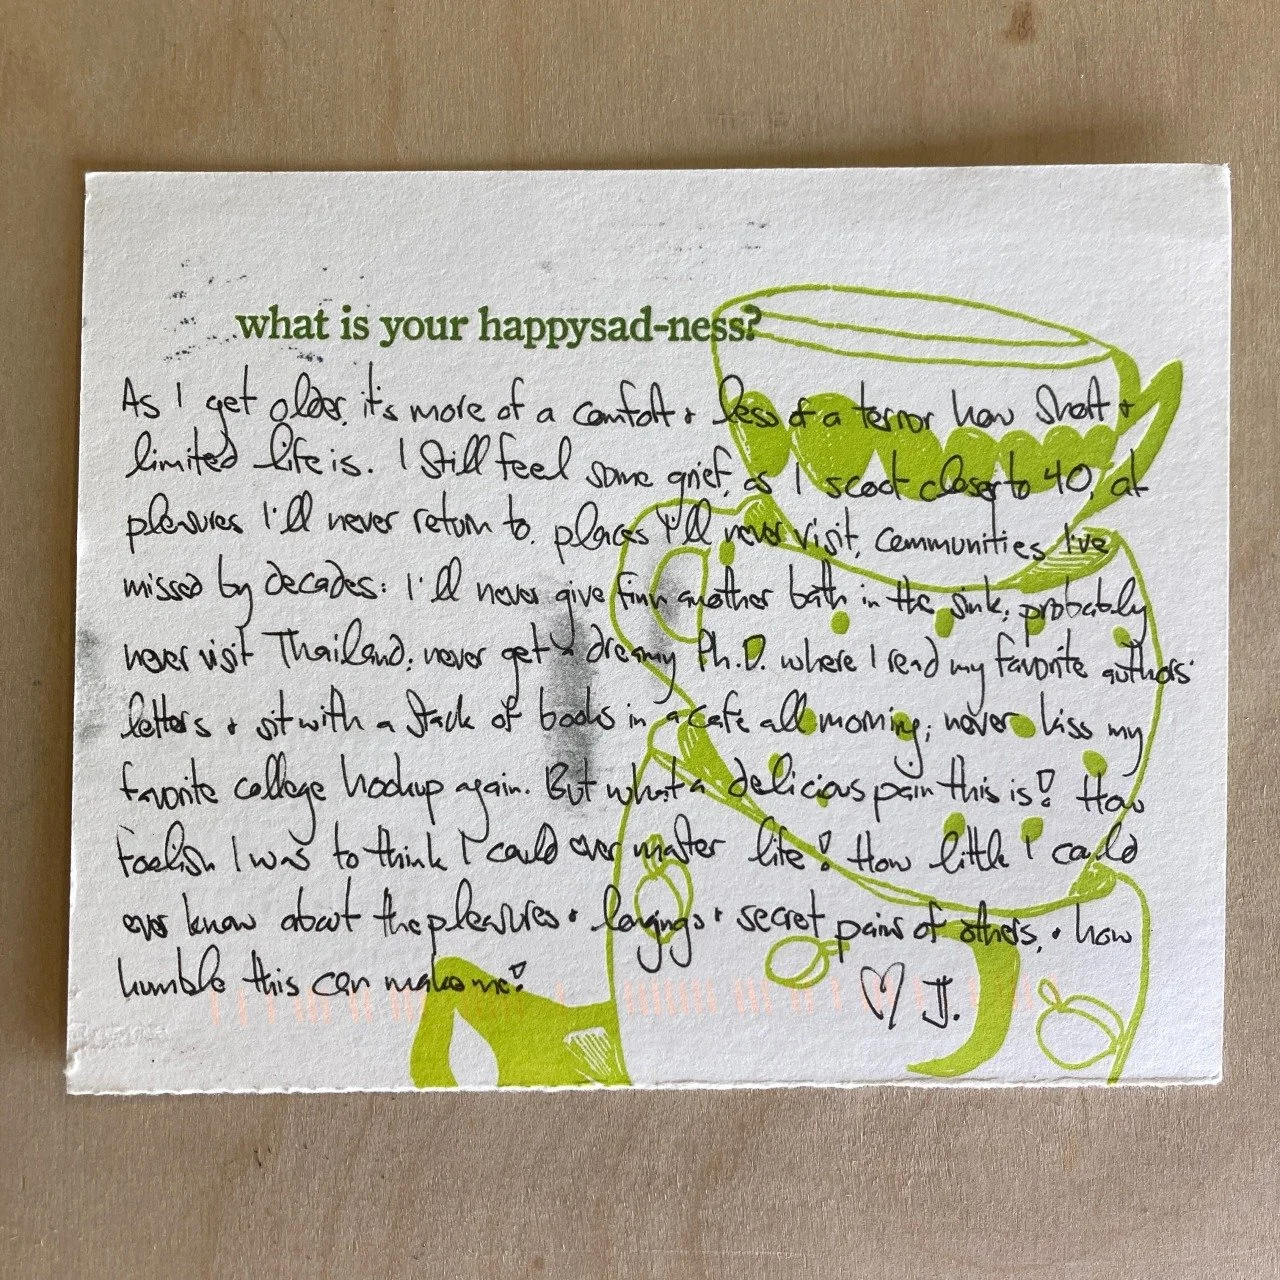 what is your happysad-ness?
As I get older, it's more of a comfort + less of a terror how short +
limited life is. I still feel some grief, as I scoot closer to 40, at
pleasures I'll never return to, places I'll never visit, communities I've
missed by decades: I'll never give Finn another bath in the sink; probably
never visit Thailand; never get a dreamy Ph.D. where I read my favorite authors'
letters + sit with a stack of books in a cafe all morning; never kiss my
favorite college hookup again. But what a delicious pain this is! How
foolish I was to think I could ever master life! How little I could
ever know about the pleasures + longings + secret pains of others, + how
humble this can make me!
♡ J.